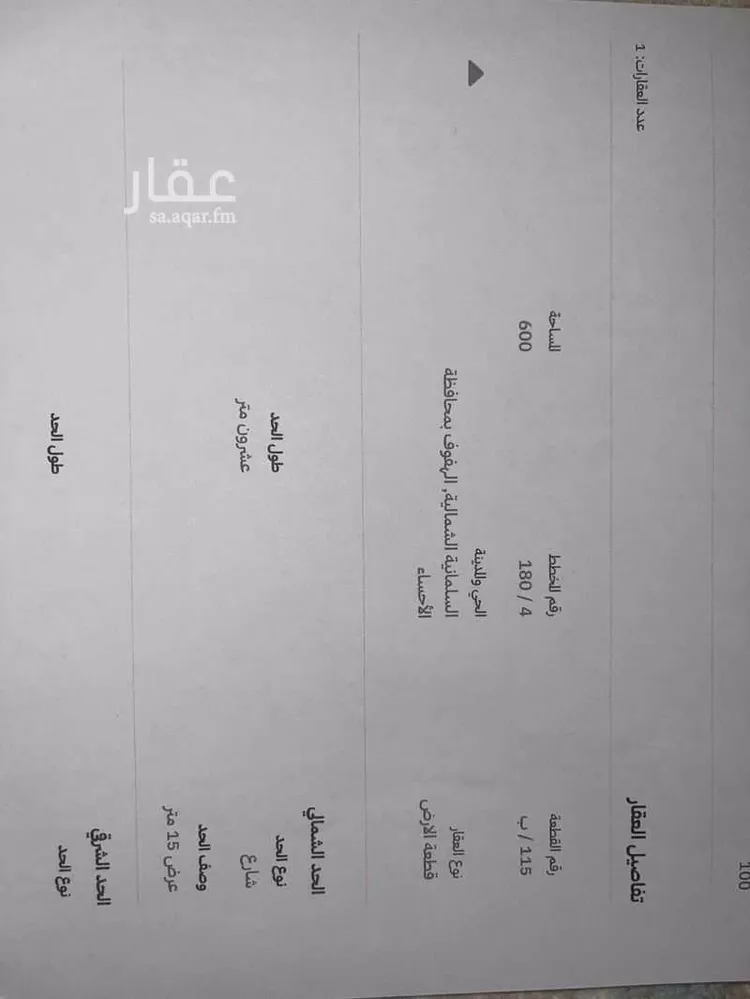 100
تفاصيل العقار
عدد العقارات: 1
رقم القطعة
115 / ب
رقم المخطط
180 / 4
المساحة
600
نوع العقار
قطعة الارض
الحي والمدينة
السلمانية الشمالية, الهفوف بمحافظة
الأحساء
الحد الشمالي
نوع الحد
شارع
طول الحد
عشرون متر
وصف الحد
عرض 15 متر
الحد الشرقي
نوع الحد
طول الحد
عقار
sa.aqar.fm